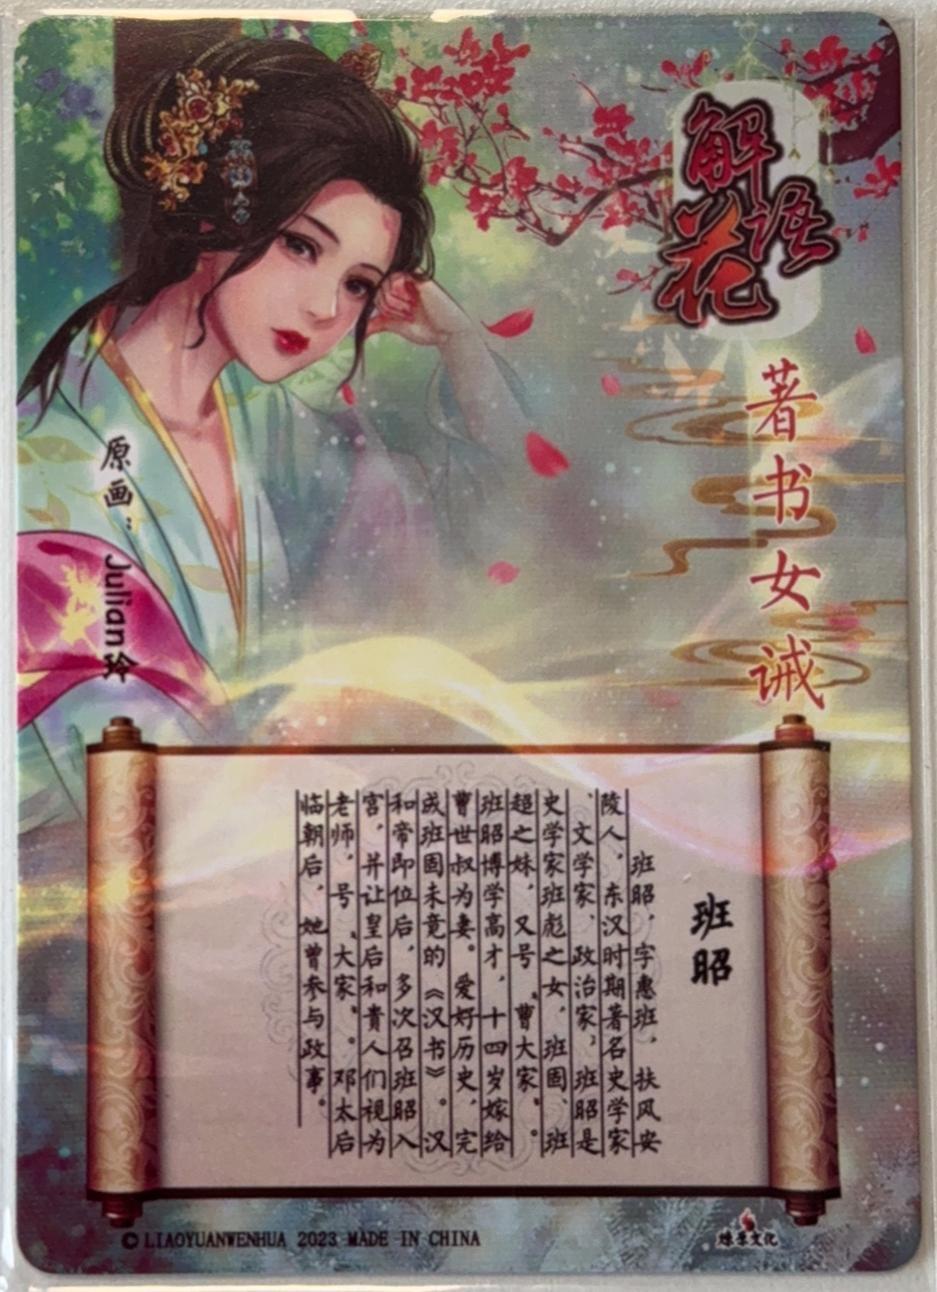 解语花
著书女诫
原画：Julian玲
班昭
班昭，字惠班，扶风安
陵人，东汉时期著名史学家
、文学家、政治家，班昭是
史学家班彪之女，班固、班
超之妹，又号“曹大家”。
班昭博学高才，十四岁嫁给
曹世叔为妻。爱好历史，完
成班固未竟的《汉书》。汉
和帝即位后，多次召班昭入
宫，并让皇后和贵人们视为
老师，号“大家”。邓太后
临朝后，她曾参与政事。
© LIAOYUANWENHUA 2023 MADE IN CHINA
燎原文化